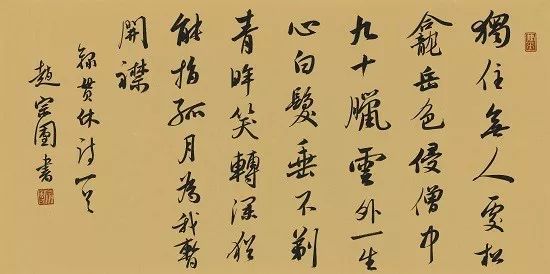 獨住無人處松
龕岳色侵僧中
九十臘雲外一生
心白髮垂不剃
青眸笑轉深猶
能指孤月為我暫
開襟
錄貫休詩一首
趙書